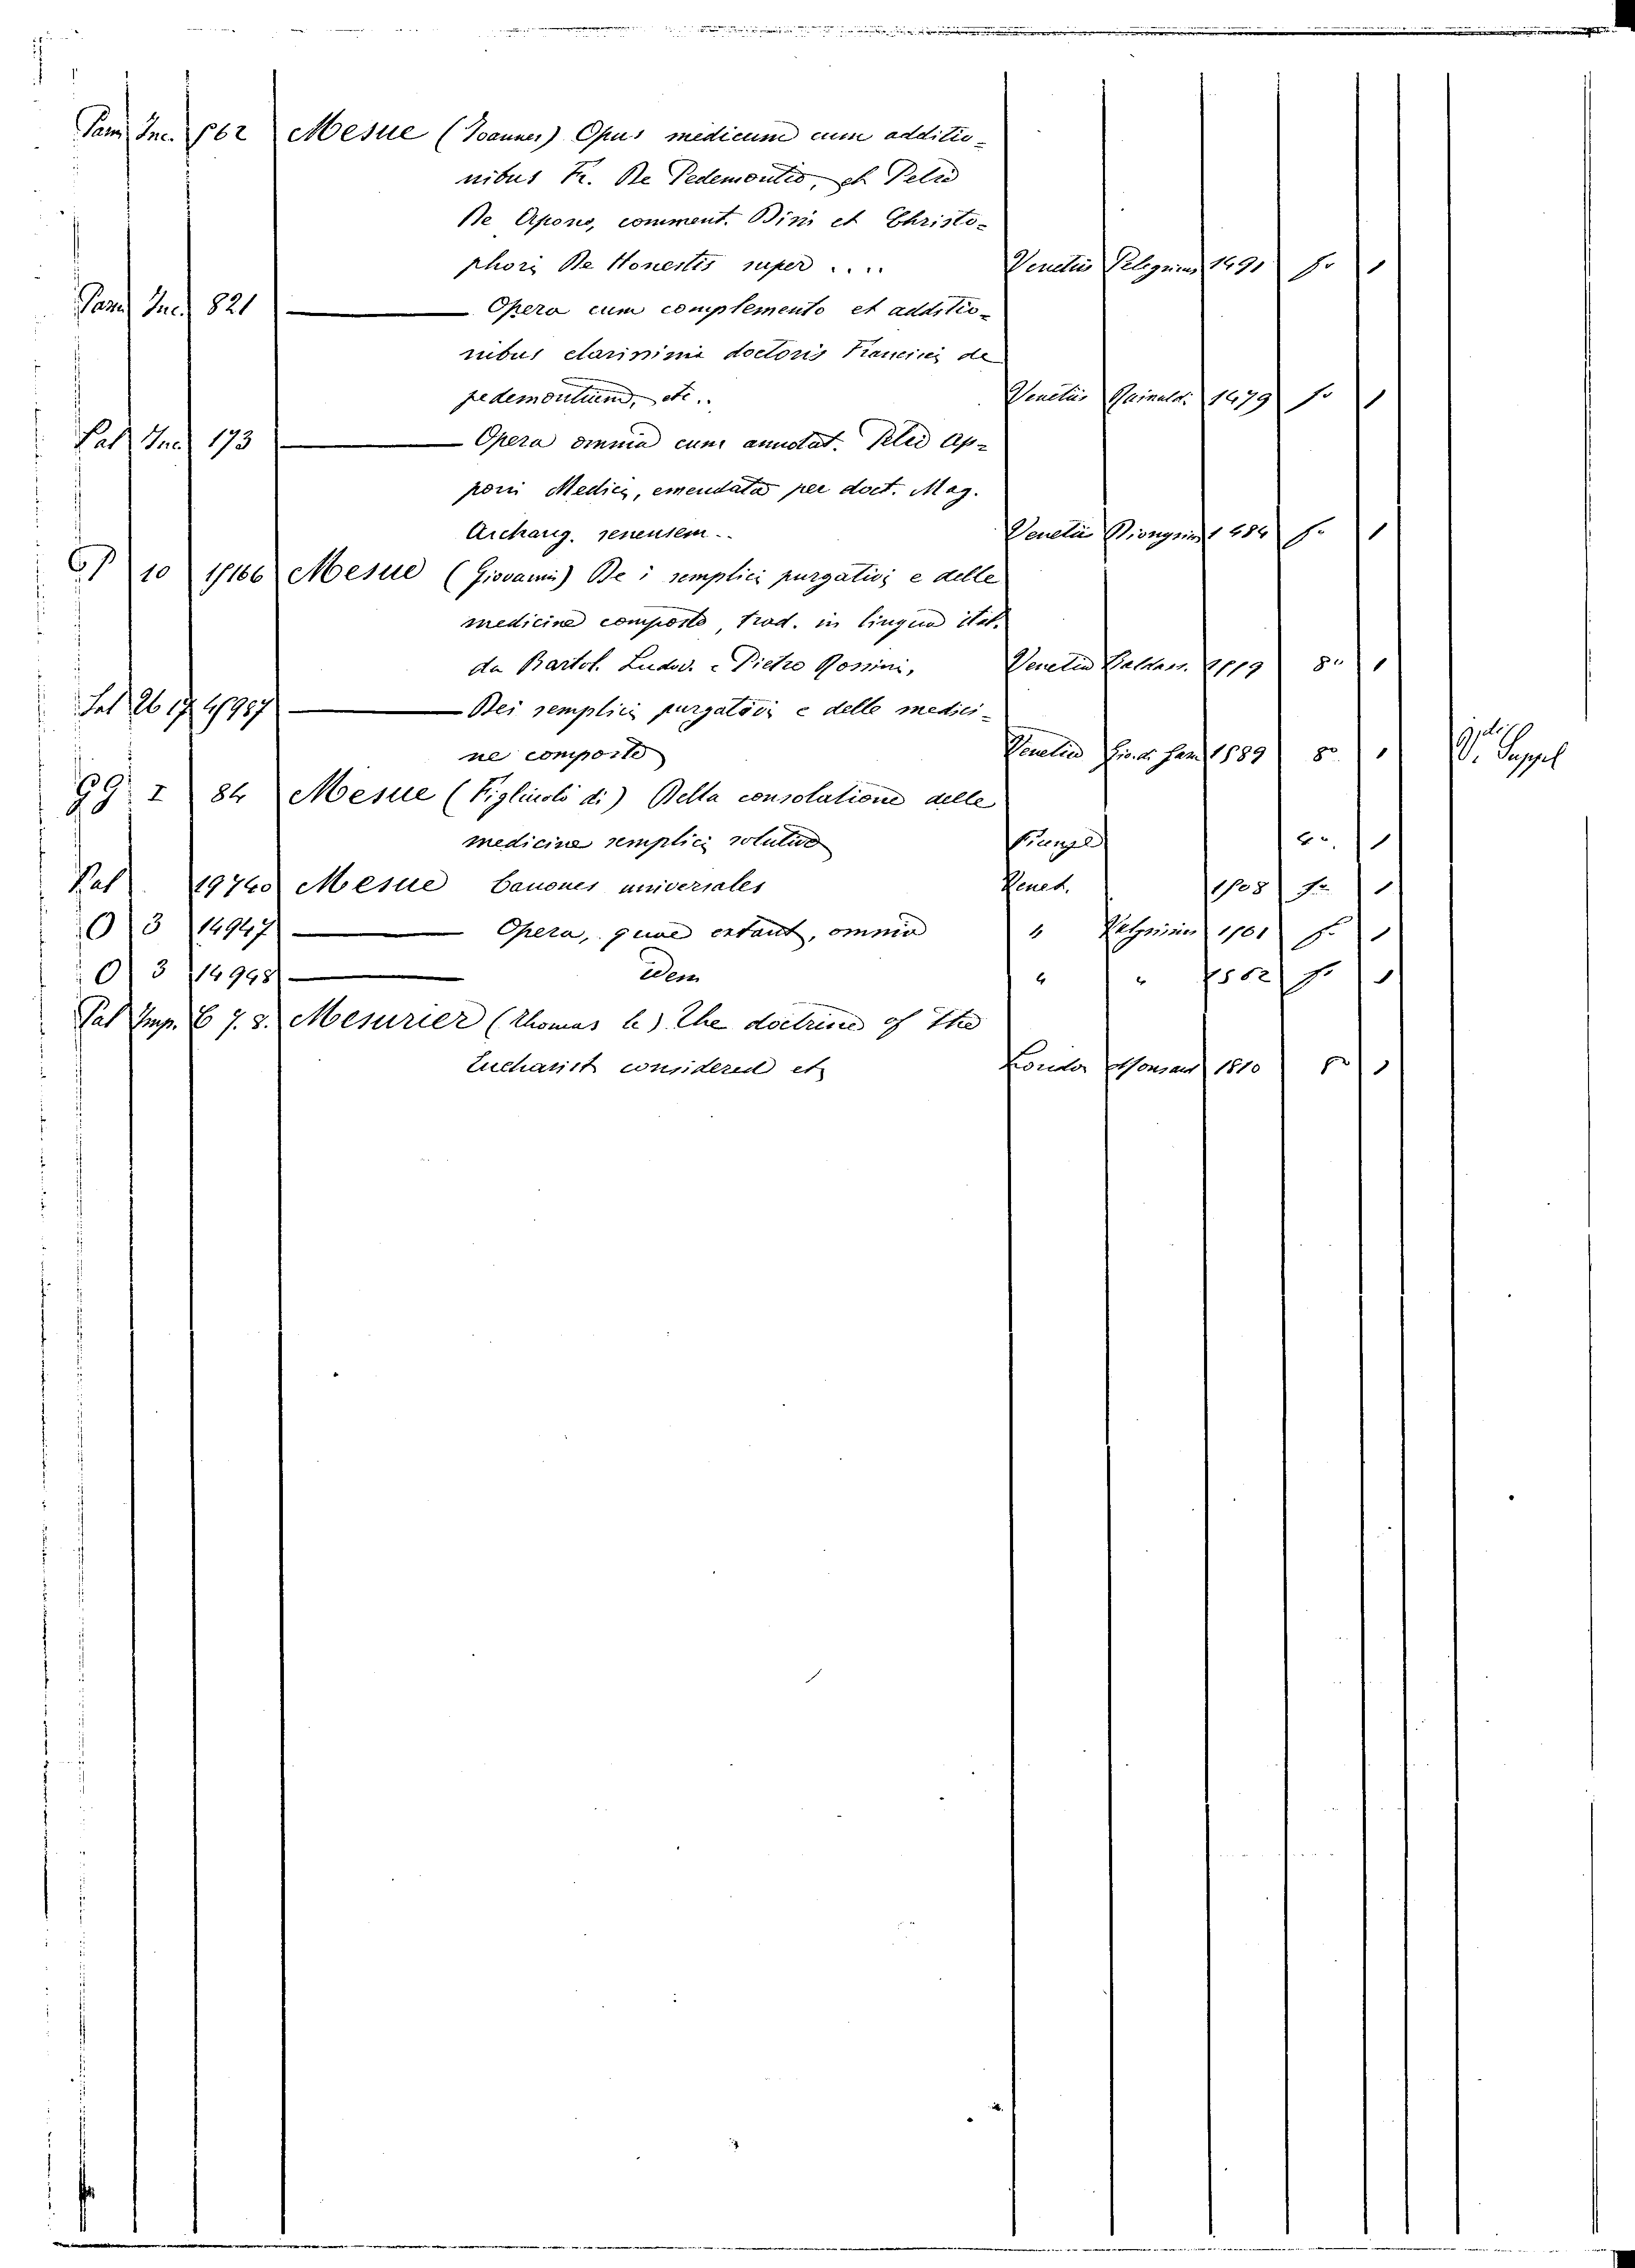 Pam Inc. 562 Mesue (Joannes) Opus medicum cum additio-
nibus Fr. De Pedemontio, et Petri
De Apono, comment. Dini et Christo-
phori De Honestis super .... Venetiis Pelegrinus 1491 fo 1
Pam Inc. 821 Opera cum complemento et additio-
nibus clarissimi doctoris Francisci de
pedemontium, etc.. Venetiis Rainald. 1479 fo 1
Pal Inc. 173 Opera omnia cum annotat. Petri Ap-
poni Medici, emendata per doct. Mag.
Archang. senensem.. Venetiis 1484 fo 1
10 15166 Mesue (Giovanni) De i semplici purgativi e delle
medicine composte, trad. in lingua ital.
da Bartol. Ludov. e Pietro Rossini, Venetia Baldass. 1559 8o 1
26 17 45987 Dei semplici purgativi e delle medici-
ne composte Venetia 1589 8o 1 V. Suppl
GG I 84 Mesue (Figliuolo di) Della consolatione delle
medicine semplici solutive Firenze 4o. 1
Pal 19740 Mesue Canones universales Venet. 1508 fo 1
O 3 14947 Opera, quae extant, omnia " Valgrisius 1561 fo 1
O 3 14948 idem " " 1562 fo 1
Pal Imp. C 7. 8. Mesurier (Thomas le) The doctrine of the
Eucharist considered etc London 1810 8o 1